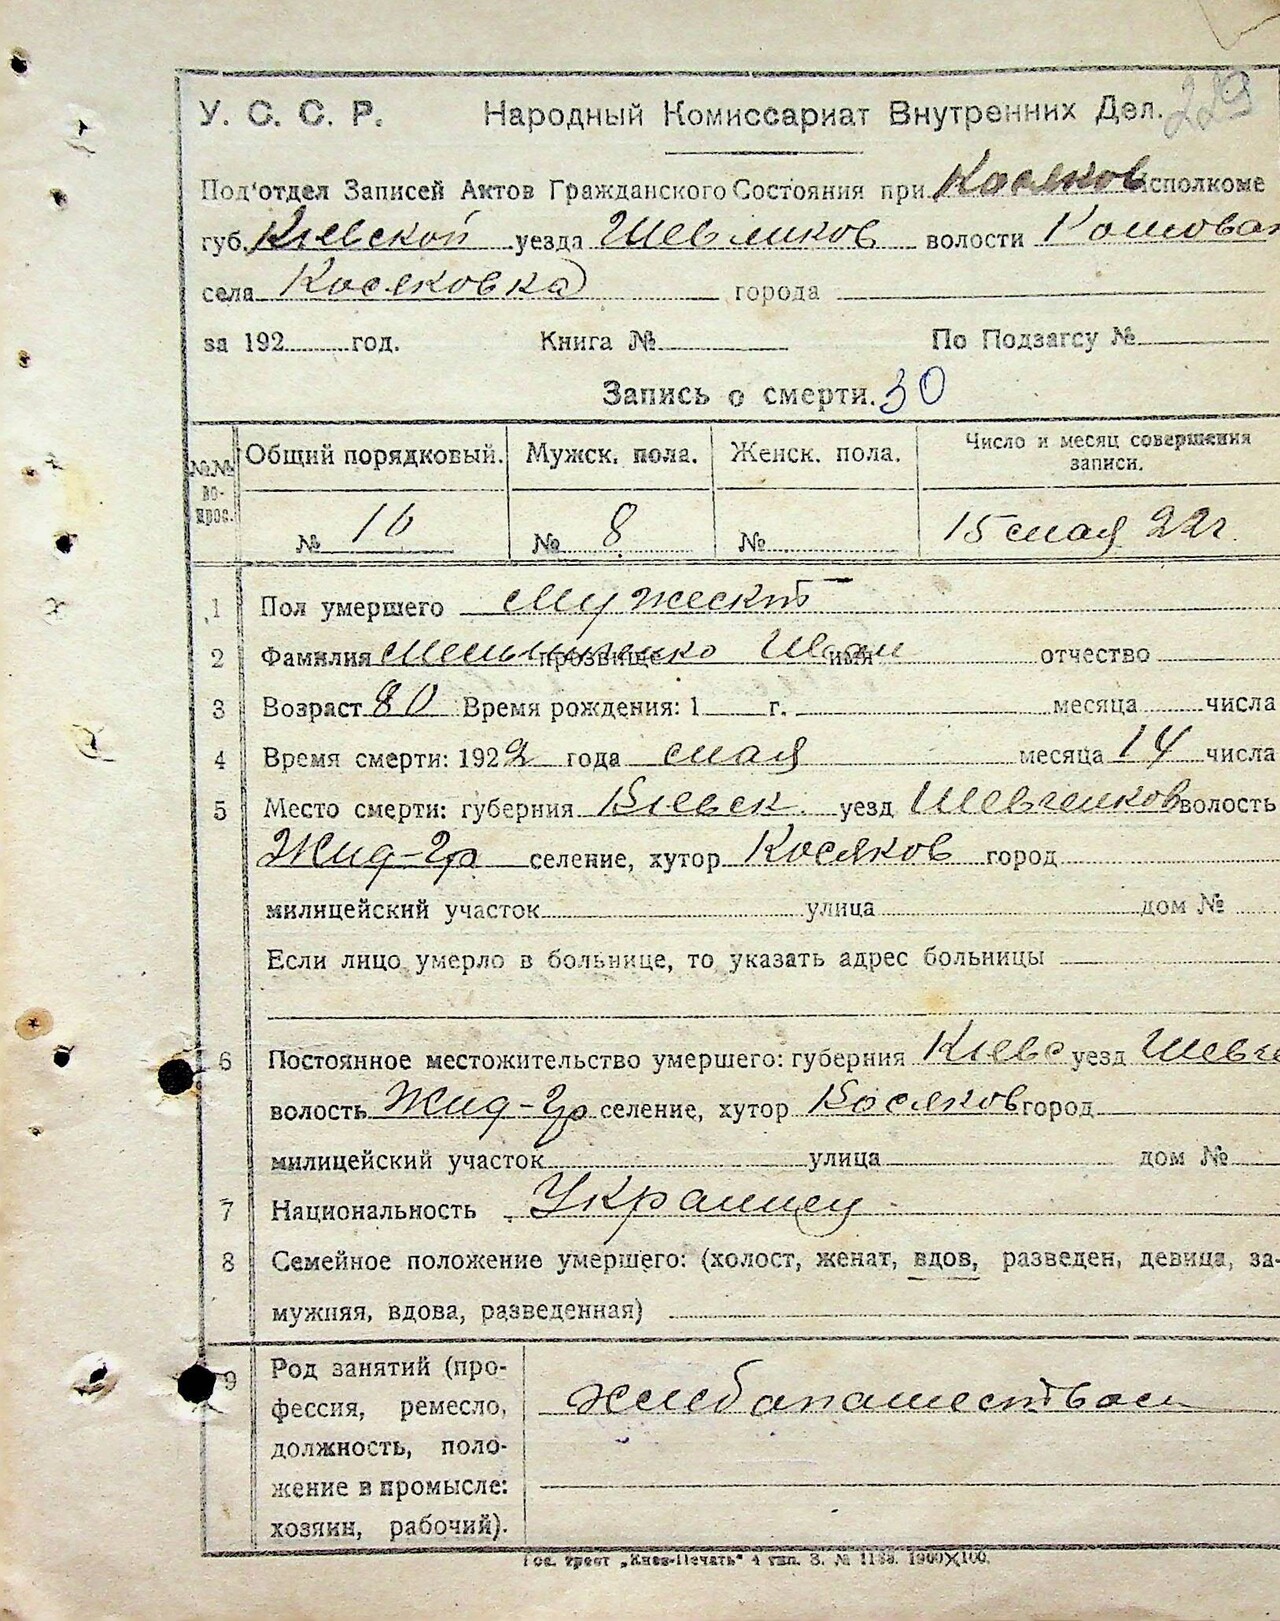 229
У. С. С. Р. Народный Комиссариат Внутренних Дел.
Под'отдел Записей Актов Гражданского Состояния при Косяков исполкоме
губ. Киевской уезда волости
села Косяковка города
за 192 год. Книга № По Подзагсу №
Запись о смерти. 30
№№ во-прос. Общий порядковый. Мужск. пола. Женск. пола. Число и месяц совершения записи.
№ 16 № 8 № 15 мая 22 г.
1 Пол умершего Мужеский
2 Фамилия прозвище Иван имя отчество
3 Возраст 80 Время рождения: 1 г. месяца числа
4 Время смерти: 1922 года мая месяца 14 числа
5 Место смерти: губерния Киевск. уезд Шевченков волость
Жид-Гр селение, хутор Косяков город
милицейский участок улица дом №
Если лицо умерло в больнице, то указать адрес больницы
6 Постоянное местожительство умершего: губерния Киевс уезд Шевче
волость Жид-Гр селение, хутор Косяков город
милицейский участок улица дом №
7 Национальность Украинец
8 Семейное положение умершего: (холост, женат, вдов, разведен, девица, за-
мужняя, вдова, разведенная)
9 Род занятий (про-
фессия, ремесло,
должность, поло-
жение в промысле:
хозяин, рабочий).
Гос. трест „Киев-Печать“ 4 тип. З. № 1188. 1900×100.